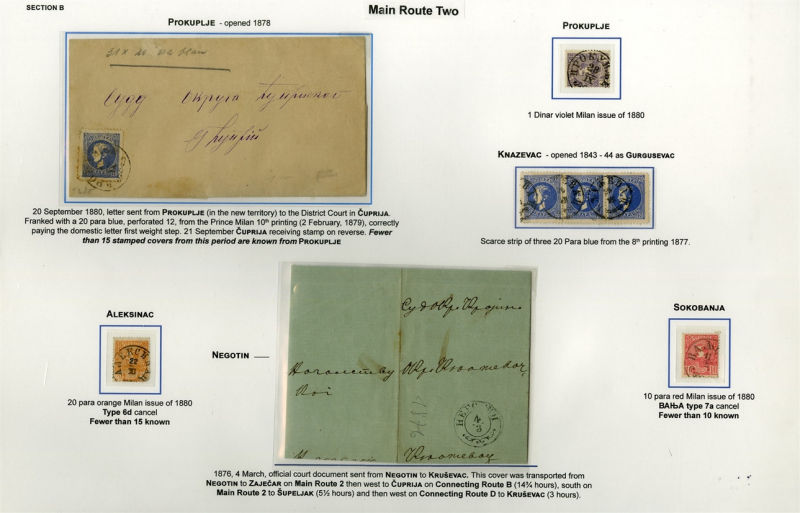 SECTION B
Main Route Two
PROKUPLJE - opened 1878
PROKUPLJE
1 Dinar violet Milan issue of 1880
KNAZEVAC - opened 1843 - 44 as GURGUSEVAC
Scarce strip of three 20 Para blue from the 8th printing 1877.
20 September 1880, letter sent from PROKUPLJE (in the new territory) to the District Court in ĆUPRIJA.
Franked with a 20 para blue, perforated 12, from the Prince Milan 10th printing (2 February, 1879), correctly
paying the domestic letter first weight step. 21 September ĆUPRIJA receiving stamp on reverse. Fewer
than 15 stamped covers from this period are known from PROKUPLJE
ALEKSINAC
20 para orange Milan issue of 1880
Type 6d cancel
Fewer than 15 known
NEGOTIN
Суд Окр. Крајинс
Началству Окр. Књажевач.
1876
Књажевац
SOKOBANJA
10 para red Milan issue of 1880
ВАЊА type 7a cancel
Fewer than 10 known
1876, 4 March, official court document sent from NEGOTIN to KRUŠEVAC. This cover was transported from
NEGOTIN to ZAJEČAR on Main Route 2 then west to ĆUPRIJA on Connecting Route B (14¼ hours), south on
Main Route 2 to ŠUPELJAK (5½ hours) and then west on Connecting Route D to KRUŠEVAC (3 hours).